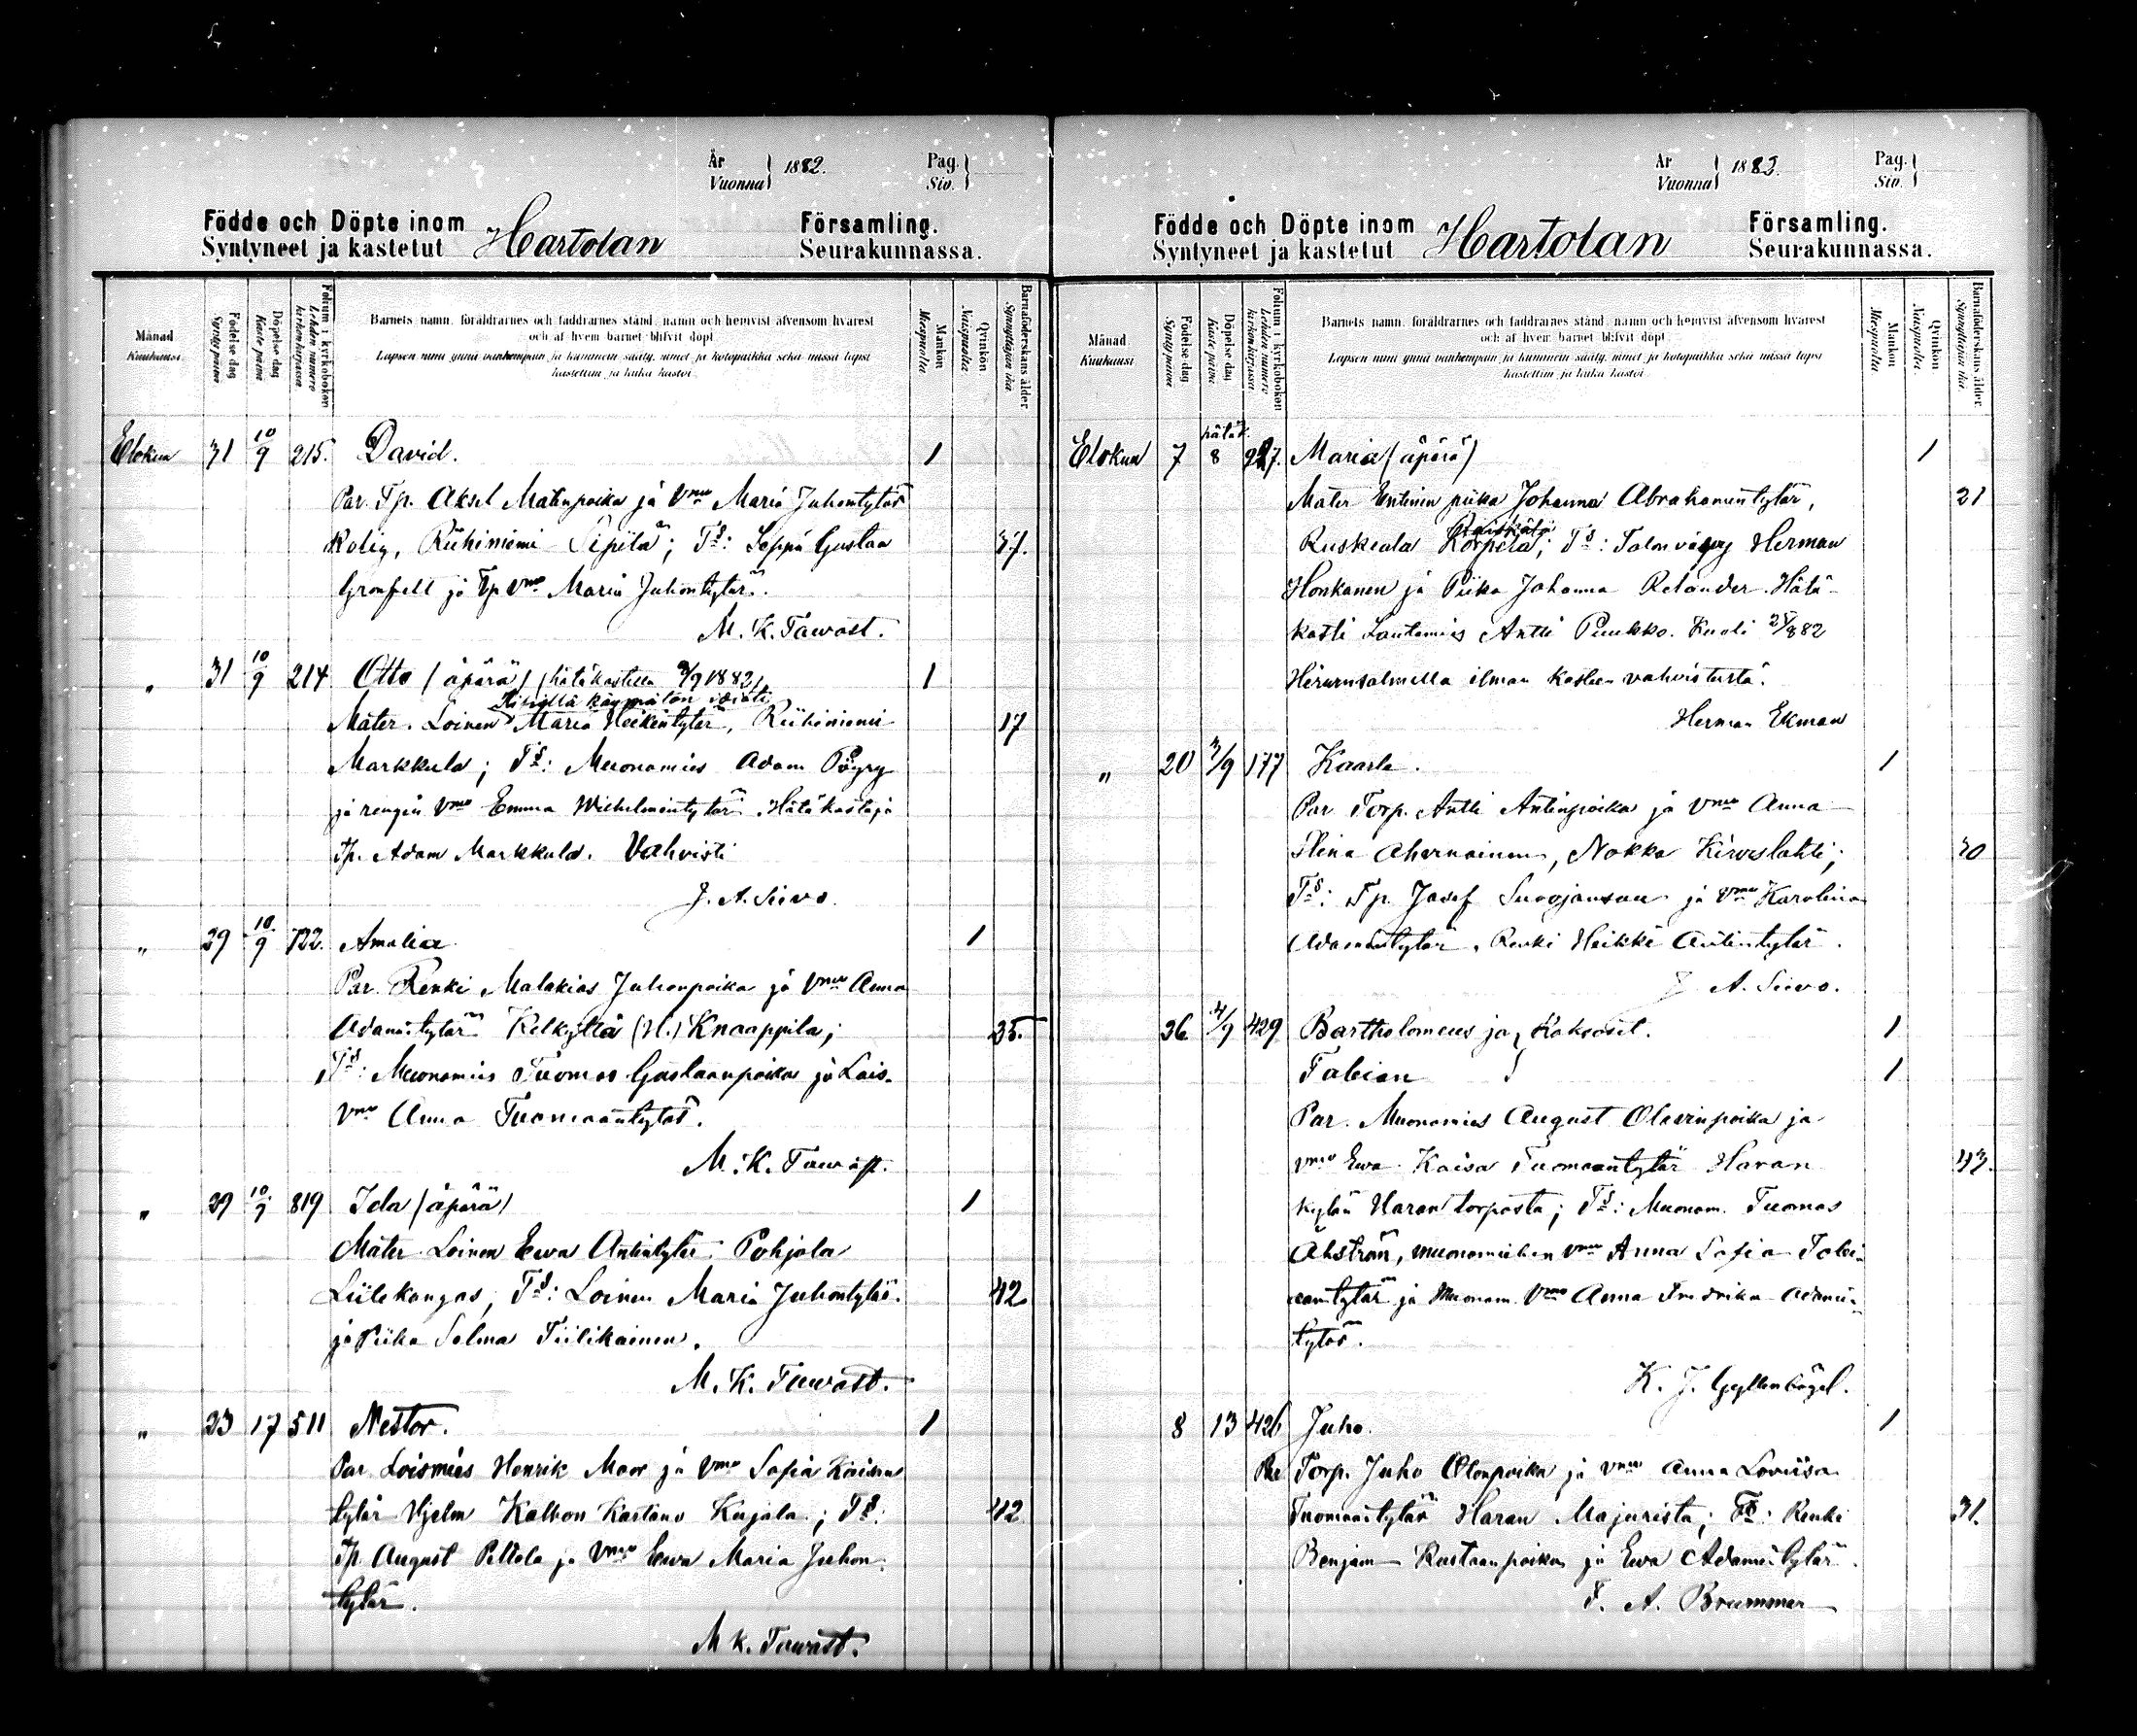 År
Vuonna 1882.
Pag.
Siv.
Födde och Döpte inom Hartolan Församling.
Syntyneet ja kastetut Seurakunnassa.
Månad Kuukausi
Födelse dag Synty päivä
Döpelse dag Kaste päivä
Folium i kyrkoboken Lehden numero kirkonkirjassa.
Barnets namn, föräldrarnes och faddrarnes stånd, namn och hemvist äfvensom hvarest
och af hvem barnet blifvit döpt
Lapsen nimi ynnä vanhempain ja kummein sääty, nimet ja kotopaikka sekä missä lapsi
kastettiin ja kuka kastoi
Mankön Miespuolta
Qvinkön Naispuolta
Barnaföderskans ålder Synnyttäjän ikä
Elokuu 31 10/9 215. David. 1
Par. Tp. Aksel Matinpoika ja Vmo Maria Juhontytär
Kolig, Riihiniemi Sipilä; Ts: Seppä Gustaa 37.
Gronfelt ja Tp Vmo Maria Juhontytär.
M. K. Tawast.
„ 31 10/9 214 Otto (äpärä) (hätäkastettu 2/9 1882) 1
Ripillä käymätön idioti
Mater. Loinen Maria Heikintytär, Riihiniemi 17
Markkula; Ts: Muonamies Adam Pöyry
ja rengin Vmo Emma Wilhelmintytär. Hätäkastaja
Tp. Adam Markkula. Vahvisti
J. A. Siivo.
„ 29 10/9 722. Amalia 1
Par. Renki Malakias Juhonpoika ja Vmo Anna
Adamintytär Kelkyttä (H.) Knaappila; 35.
Ts: Muonamies Tuomas Gustaanpoika ja Lois.
Vmo Anna Tuomaantytär.
M. K. Tawast.
„ 29 10/9 819 Ida (äpärä) 1
Mater Loinen Eewa Antintytär Pohjola
Liilekangas, Ts: Loinen Maria Juhontytär 42
ja Piika Selma Tiilikainen.
M. K. Tawast.
„ 23 17 511 Nestor. 1
Par. Loismies Henrik Moor ja Vmo Sofia
tytär Hjelm Kalhon Kartano Kujala; Ts: 42
Tp. August Peltola ja Vmo Ewa Maria Juhon-
tytär.
M K. Tawast.
År
Vuonna 1882.
Pag.
Siv.
Födde och Döpte inom Hartolan Församling.
Syntyneet ja kastetut Seurakunnassa.
Månad Kuukausi
Födelse dag Synty päivä
Döpelse dag Kaste päivä
Folium i kyrkoboken Lehden numero kirkonkirjassa.
Barnets namn, föräldrarnes och faddrarnes stånd, namn och hemvist äfvensom hvarest
och af hvem barnet blifvit döpt
Lapsen nimi ynnä vanhempain ja kummein sääty, nimet ja kotopaikka sekä missä lapsi
kastettiin ja kuka kastoi
Mankön Miespuolta
Qvinkön Naispuolta
Barnaföderskans ålder Synnyttäjän ikä
hätäk.
Elokuu 7 8 927. Maria (äpärä) 1
Mater Entinen piika Johanna Abrahamintytär, 21
Ruskeala Korpela; Ts: Talon vävy Herman
Honkanen ja Piika Johanna Relander. Hätä-
kasti Lautamies Antti Puukko. Kuoli 25/8 82
Hirvensalmella ilman kasteen vahvistusta.
Herman Ekman
„ 20 3/9 177 Kaarle. 1
Par Torp. Antti Antinpoika ja Vmo Anna
Stina Ahornainen, Nokka Kirveslahti; 30
Ts: Tp. Josef Suvojansuu ja Vmo Karolina
Adamintytär, Renki Heikki Antintytär.
J. A. Siivo.
26 4/9 429 Bartholomeus ja } Kaksoset. 1
Fabian 1
Par. Muonamies August Olavinpoika ja
vmo Ewa Kaisa Tuomaantytär Haran 43.
kylän Haran torpasta; Ts: Muonam. Tuomas
Åhström, muonamiehen vmo Anna Sofia Tobi-
eantytär ja Muonam. Vmo Anna Fredrika Adamin-
tytär.
K. J. Gyllenbögel.
8 13 426 Juho. 1
Par Torp. Juho Olonpoika ja vmo Anna Loviisa
Tuomaantytär Haran Majurista; Ts: Renki 31.
Benjam Kustaanpoika ja Ewa Adamintytär.
F. A. Brummer